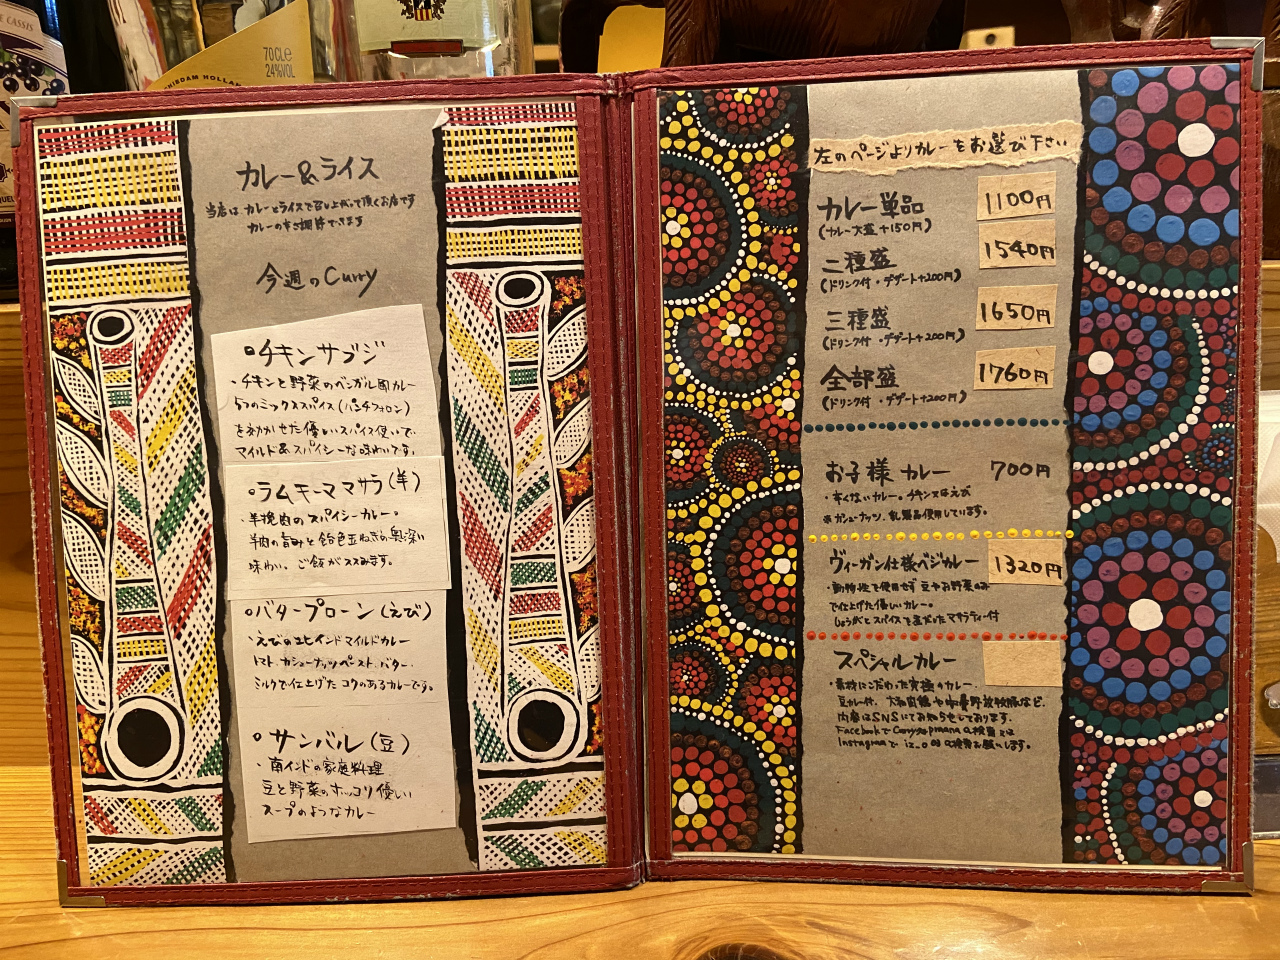 CASSIS
SCHIEDAM HOLLAND
70CLe
24%VOL
カレー&ライス
当店はカレーとライスで召し上がって頂くお店です
カレーの辛さ調節できます
今週のCurry
チキンサブジ
・チキンと野菜のベンガル風カレー
5つのミックススパイス(パンチフォロン)
を効かせた優しいスパイス使いで、
マイルド&スパイシーな味わいです。
ラムキーママサラ(羊)
・羊挽肉のスパイシーカレー。
羊肉の旨みと飴色玉ねぎの奥深い
味わい、ご飯がススみます。
バタープローン(えび)
・えびの北インドマイルドカレー
トマト、カシューナッツペースト、バター、
ミルクで仕上げたコクのあるカレーです。
サンバル(豆)
・南インドの家庭料理
豆と野菜のホッコリ優しい
スープのようなカレー
左のページよりカレーをお選び下さい
カレー単品 1100円
(カレー大盛+150円)
二種盛 1540円
(ドリンク付・デザート+200円)
三種盛 1650円
(ドリンク付・デザート+200円)
全部盛 1760円
(ドリンク付・デザート+200円)
お子様カレー 700円
・辛くないカレー。チキン又はえび
※カシューナッツ、乳製品使用しています。
ヴィーガン仕様ベジカレー 1320円
・動物性で使用せず豆やお野菜のみ
で仕上げた優しいカレー。
しょうがとスパイスで煮だしたマサラティー付
スペシャルカレー
・素材にこだわった究極のカレー
豆カレー付、大和
放牧豚など、
内容はSNSにてお知らせしております。
Facebookで
検索又は
Instagramで
検索お願いします。